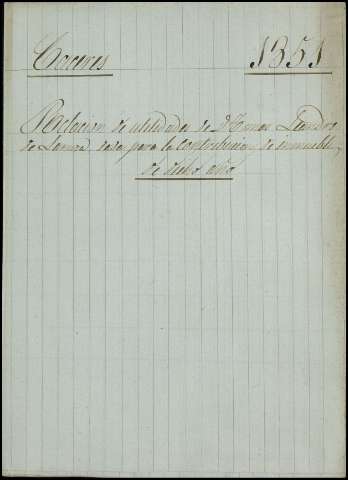 Caceres 1851
Relacion de utilidades de D. Leandro
de dada para la contribucion de inmuebles
de dicho año